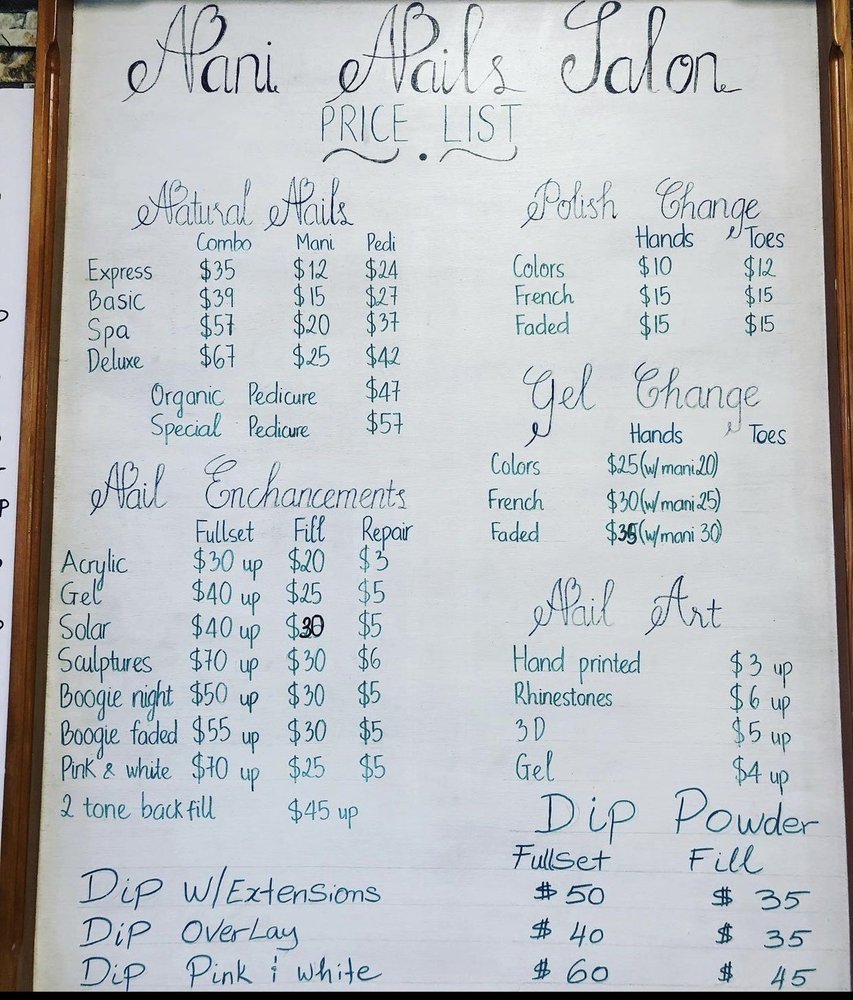 Nani Nails Salon
PRICE LIST
Natural Nails
Combo Mani Pedi
Express $35 $12 $24
Basic $39 $15 $27
Spa $57 $20 $37
Deluxe $67 $25 $42
Organic Pedicure $47
Special Pedicure $57
Nail Enchancements
Fullset Fill Repair
Acrylic $30 up $20 $3
Gel $40 up $25 $5
Solar $40 up $30 $5
Sculptures $70 up $30 $6
Boogie night $50 up $30 $5
Boogie faded $55 up $30 $5
Pink & white $70 up $25 $5
2 tone backfill $45 up
Polish Change
Hands Toes
Colors $10 $12
French $15 $15
Faded $15 $15
Gel Change
Hands Toes
Colors $25(w/mani 20)
French $30(w/mani 25)
Faded $35(w/mani 30)
Nail Art
Hand printed $3 up
Rhinestones $6 up
3D $5 up
Gel $4 up
Dip Powder
Fullset Fill
Dip w/Extensions $50 $35
Dip Overlay $40 $35
Dip Pink & white $60 $45